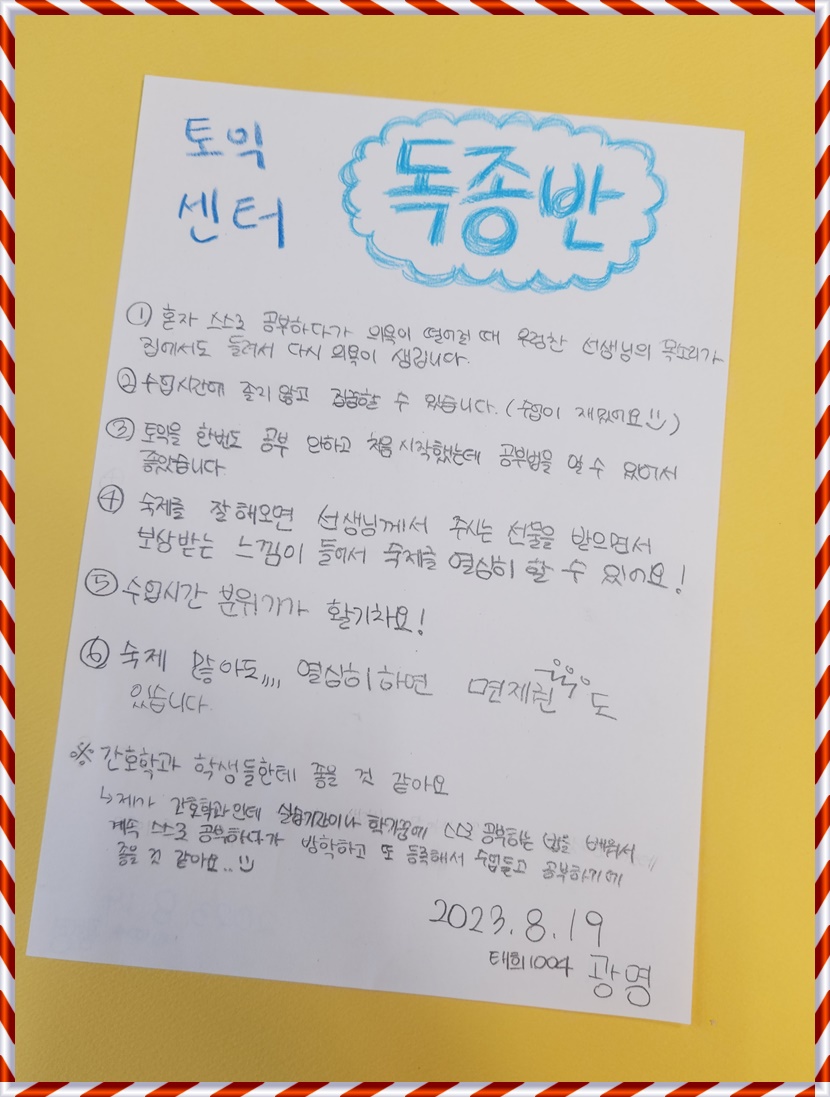 토익
센터
독종반
① 혼자 스스로 공부하다가 의욕이 떨어질 때 우렁찬 선생님의 목소리가
집에서도 들려서 다시 의욕이 생깁니다.
② 수업시간에 졸지 않고 집중할 수 있습니다. (수업이 재밌어요 )
③ 토익을 한번도 공부 안하고 처음 시작했는데 공부법을 알 수 있어서
좋았습니다
④ 숙제를 잘 해오면 선생님께서 주시는 선물을 받으면서
보상받는 느낌이 들어서 숙제를 열심히 할 수 있어요!
⑤ 수업시간 분위기가 활기차요!
⑥ 숙제 많아도,,,, 열심히하면 면제권 도
있습니다.
※ 간호학과 학생들한테 좋을 것 같아요
↳ 제가 간호학과인데 실습기간이나 학기중에 스스로 공부하는 법을 배워서
계속 스스로 공부하다가 방학하고 또 등록해서 수업듣고 공부하기에
좋을 것 같아요..
2023.8.19
태희1004 광영